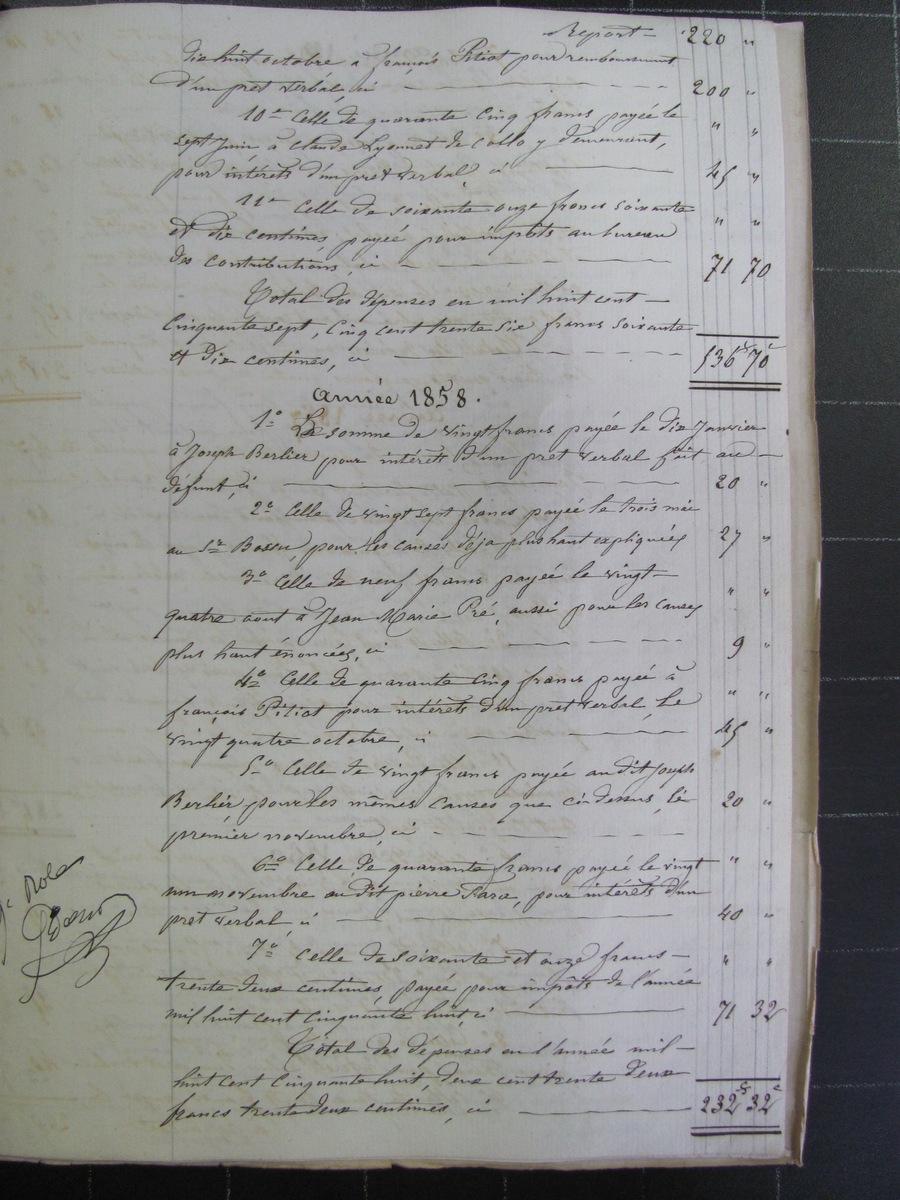 Report 220 "
dix huit octobre à françois Pitiot pour remboursement
d'un prêt verbal, ci 200 "
10° Celle de quarante cinq francs payée le " "
sept juin à Claude Lyonnet de Collo y demeurant,
pour intérêts d'un prêt verbal, ci 45 "
11° Celle de soixante onze francs soixante " "
et dix centimes payée pour impôts au bureau
des contributions, ci 71 70
Total des dépenses en mil huit cent
Cinquante sept, Cinq cent trente six francs soixante
et dix centimes, ci 536 f 70 c
année 1858.
1° La somme de vingt francs payée le dix Janvier
à Joseph Berlier pour intérêt d'un prêt verbal fait au
défunt, ci 20 "
2° Celle de vingt sept francs payée le trois mai
au Sr Bossu, pour les causes déja plus haut expliquées 27 "
3° Celle de neuf francs payée le vingt " "
quatre aout à Jean Marie Pré, aussi pour les causes
plus haut énoncées, ci 9 "
4° Celle de quarante Cinq francs payée à " "
françois Pitiot pour intérêts d'un prêt verbal, le
vingt quatre octobre, ci 45 "
5° Celle de vingt francs payée au dit Joseph
Berlier pour les mêmes causes que ci-dessus, le 20 "
premier novembre, ci
6° Celle de quarante francs payée le vingt " "
un novembre au dit pierre Fara, pour intérêts d'un
prêt verbal, ci 40 "
7° Celle de soixante et onze francs " "
trente deux centimes payée pour impôts de l'année
mil huit cent cinquante huit, ci 71 32
Total des dépenses en l'année mil
huit cent Cinquante huit, deux cent trente deux
francs trente deux centimes, ci 232 f 32 c
Role